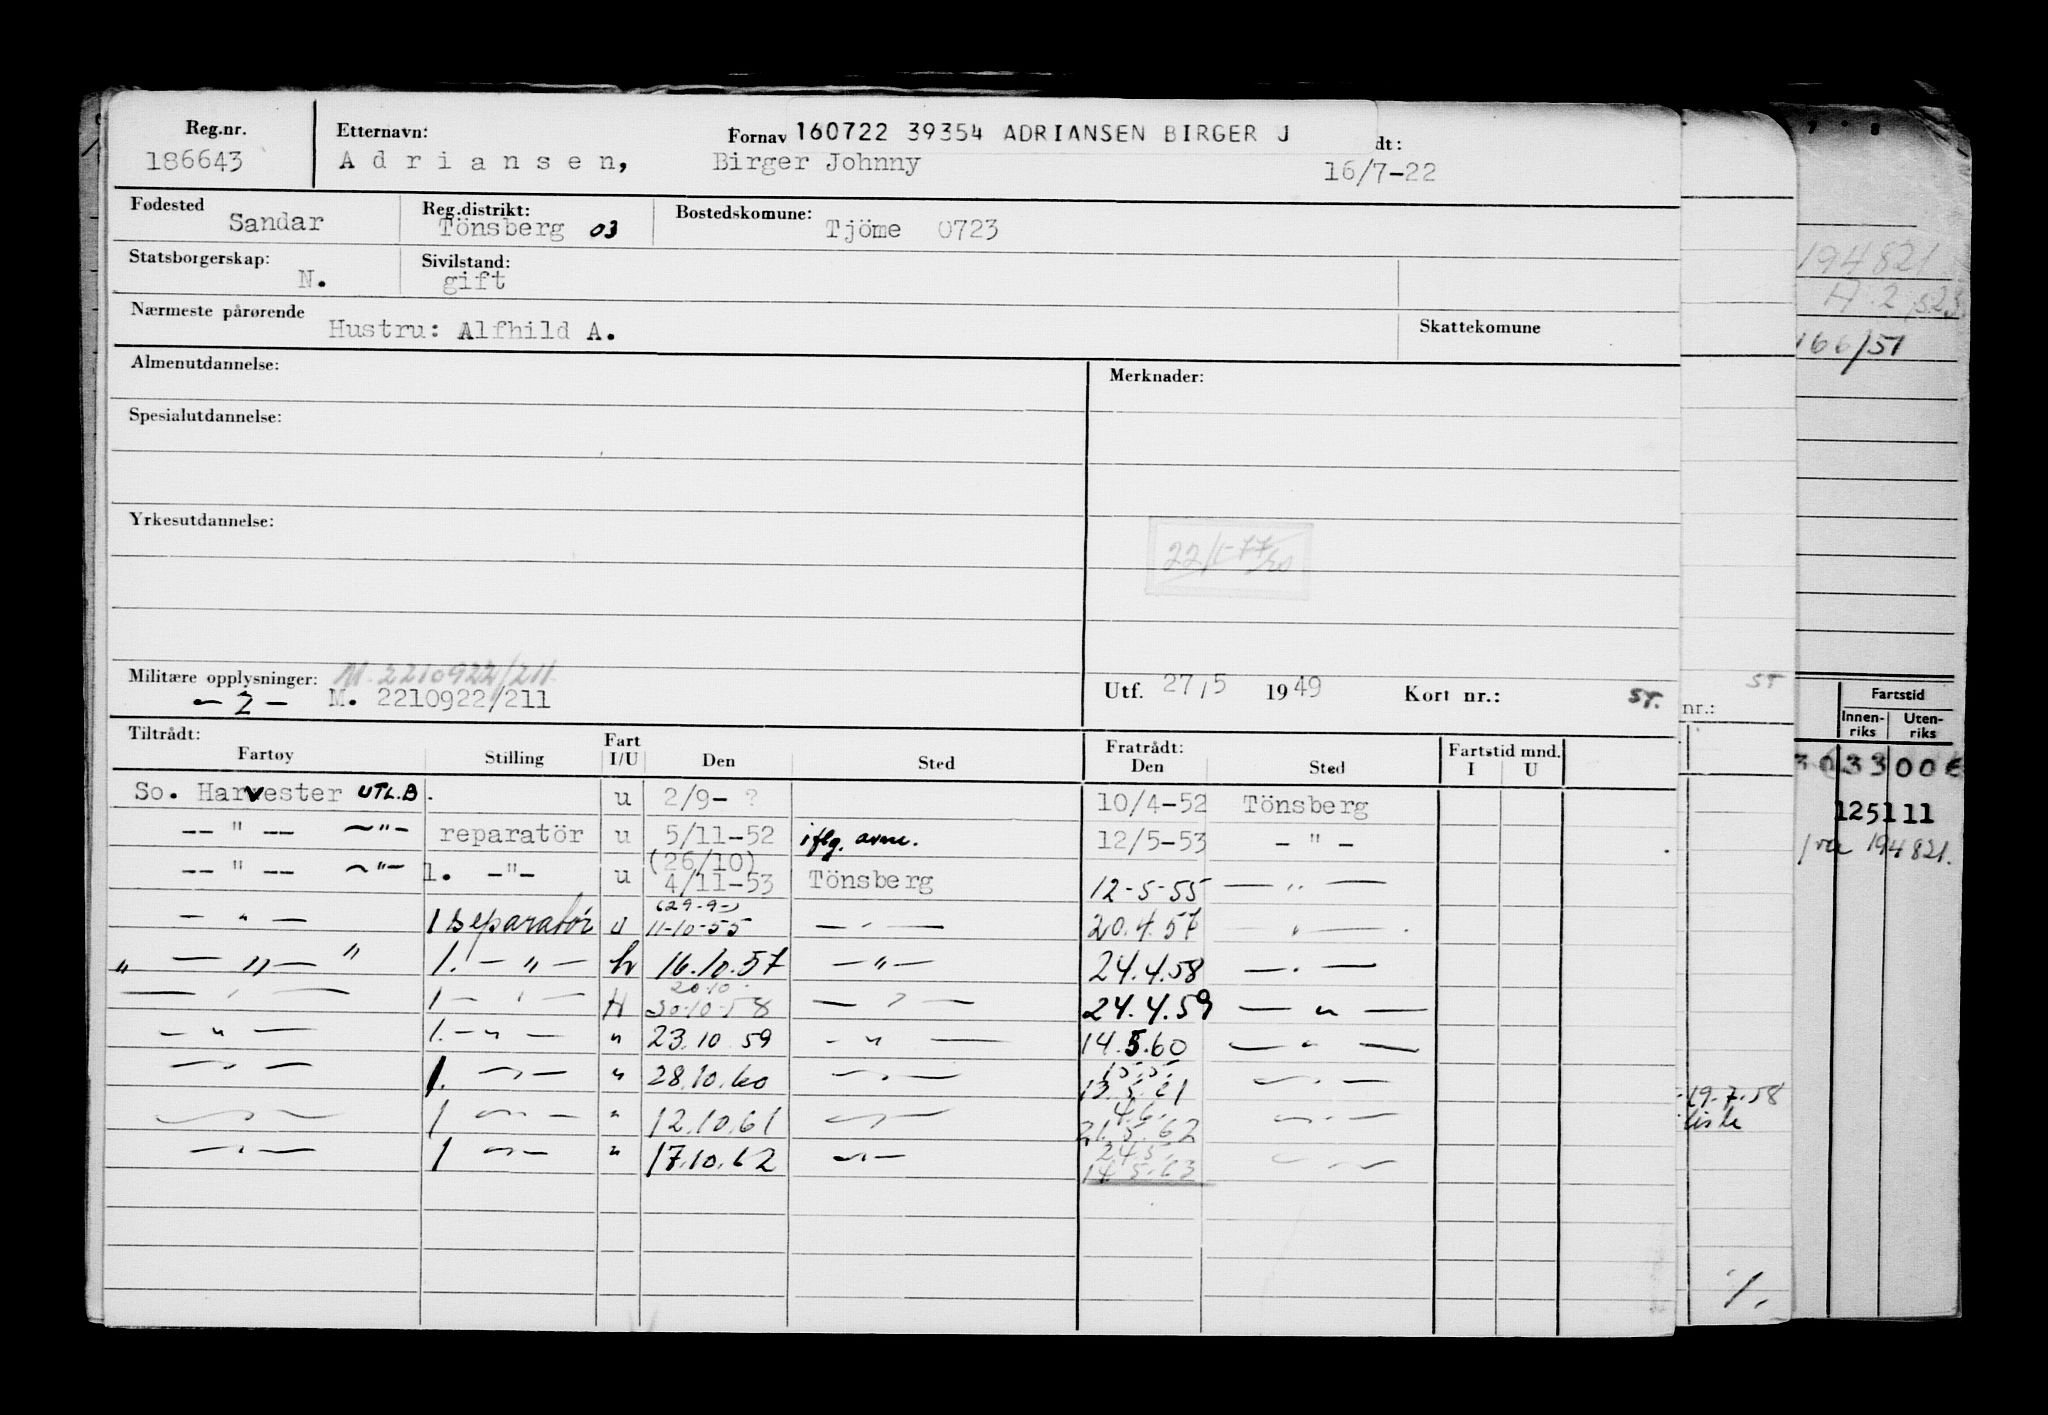 Reg.nr. Etternavn: Fornav 160722 39354 ADRIANSEN BIRGER J dt:
186643 A d r i a n s e n, Birger Johnny 16/7-22
Fødested Reg.distrikt: Bostedskomune:
Sandar Tönsberg 03 Tjöme 0723
Statsborgerskap: Sivilstand:
N. gift
Nærmeste pårørende Hustru: Alfhild A. Skattekomune
Almenutdannelse: Merknader:
Spesialutdannelse:
Yrkesutdannelse:
Militære opplysninger: M. 2210922/211
- 2 - M. 2210922/211 Utf. 27/5 1949 Kort nr.: ST.
Tiltrådt: Fart Fratrådt: Fartstid mnd.
Fartøy Stilling I/U Den Sted Den Sted I U
So. Harvester UTL.B. u 2/9- ? 10/4-52 Tönsberg
-- " -- -"- reparatör u 5/11-52 iflg. 12/5-53 - " -
-- " -- -"- 1. -"- u (26/10) 4/11-53 Tönsberg 12-5-55 - " -
- " - 1 separatør u (29-9-) 11-10-55 - " - 20.4.57 - " -
" - " - " 1. - " - hv 16.10.57 - " - 24.4.58 - " -
- " - 1 - " - H 20.10. 30-10-58 - " - 24.4.59 - " -
- " - 1. - " - " 23.10.59 - " - 14.5.60 - " -
- " - 1. - " - " 28.10.60 - " - 15.5. 13.5.61 - " -
- " - 1 - " - " 12.10.61 - " - 4.6. 21.5.62 - " -
- " - 1 - " - " 17.10.62 - " - 24.5. 14.5.63 - " -
ST
nr.:
19.7.58
liste
1.
194821
166/51
Fartstid
Innen-riks Uten-riks
3033006
125111
194821.